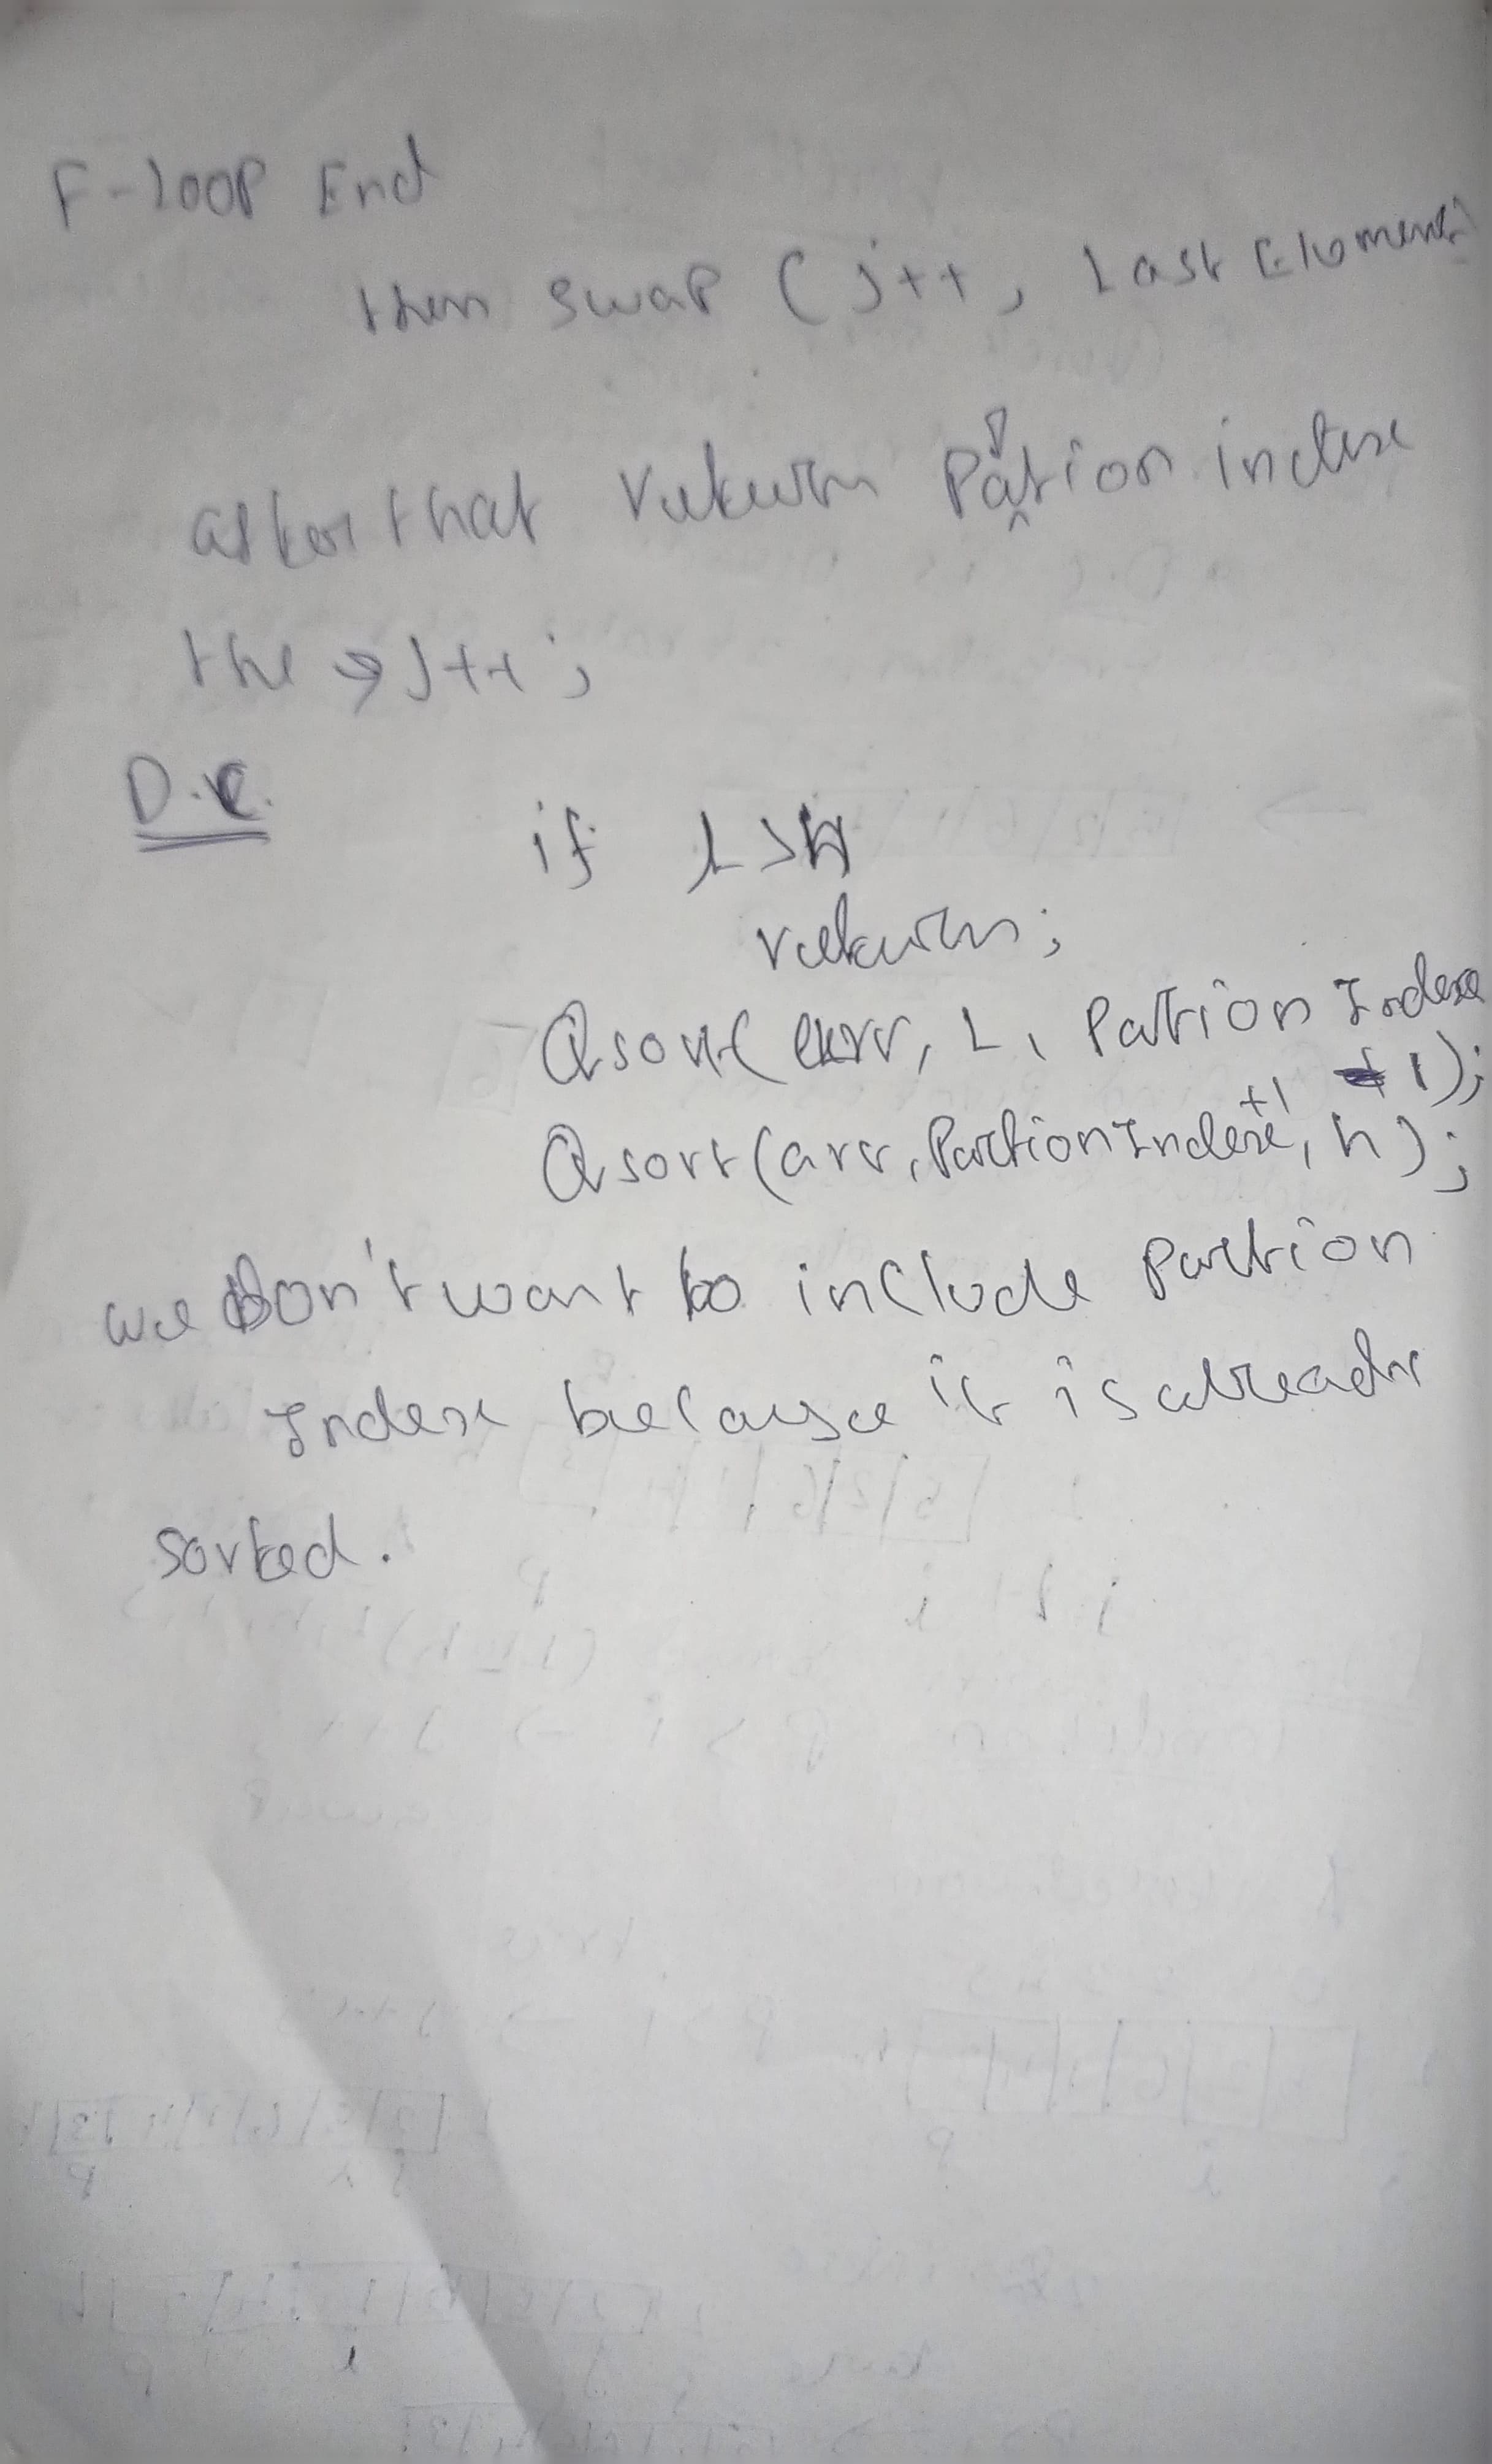 F-loop End
then swap (j++, Last Element)
after that return Partion index
the → j++;
D.C.
if L>H
return;
Qsort(arr, L, Partion Index
- 1);
Qsort(arr, PartionIndex+1, h);
we Don't want to include Partion
Index because it is already
sorted.